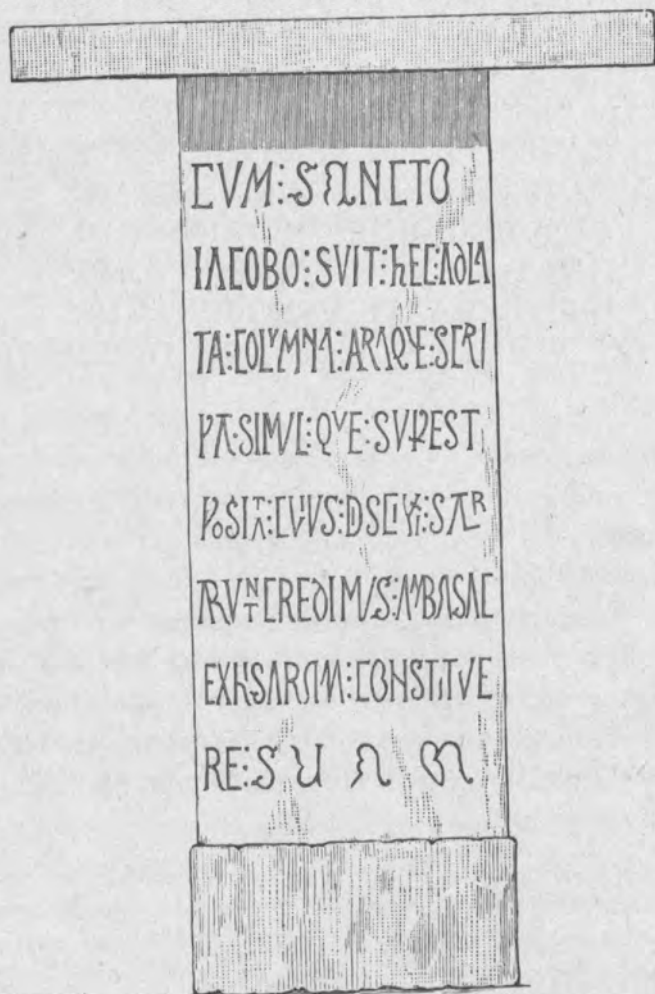 CVM:SANCTO
IACOBO:SVIT:hEC:ADLA
TA:COLVMNA:ARAQVE:SCRI
PA·SIMVL:QVE:SVPEST
POSITA:CVIVS:DSCIPLI:SACR
ARVNT:CREDIMVS:AMBASAC
EXHISARAM:CONSTITVE
RE:SUAM